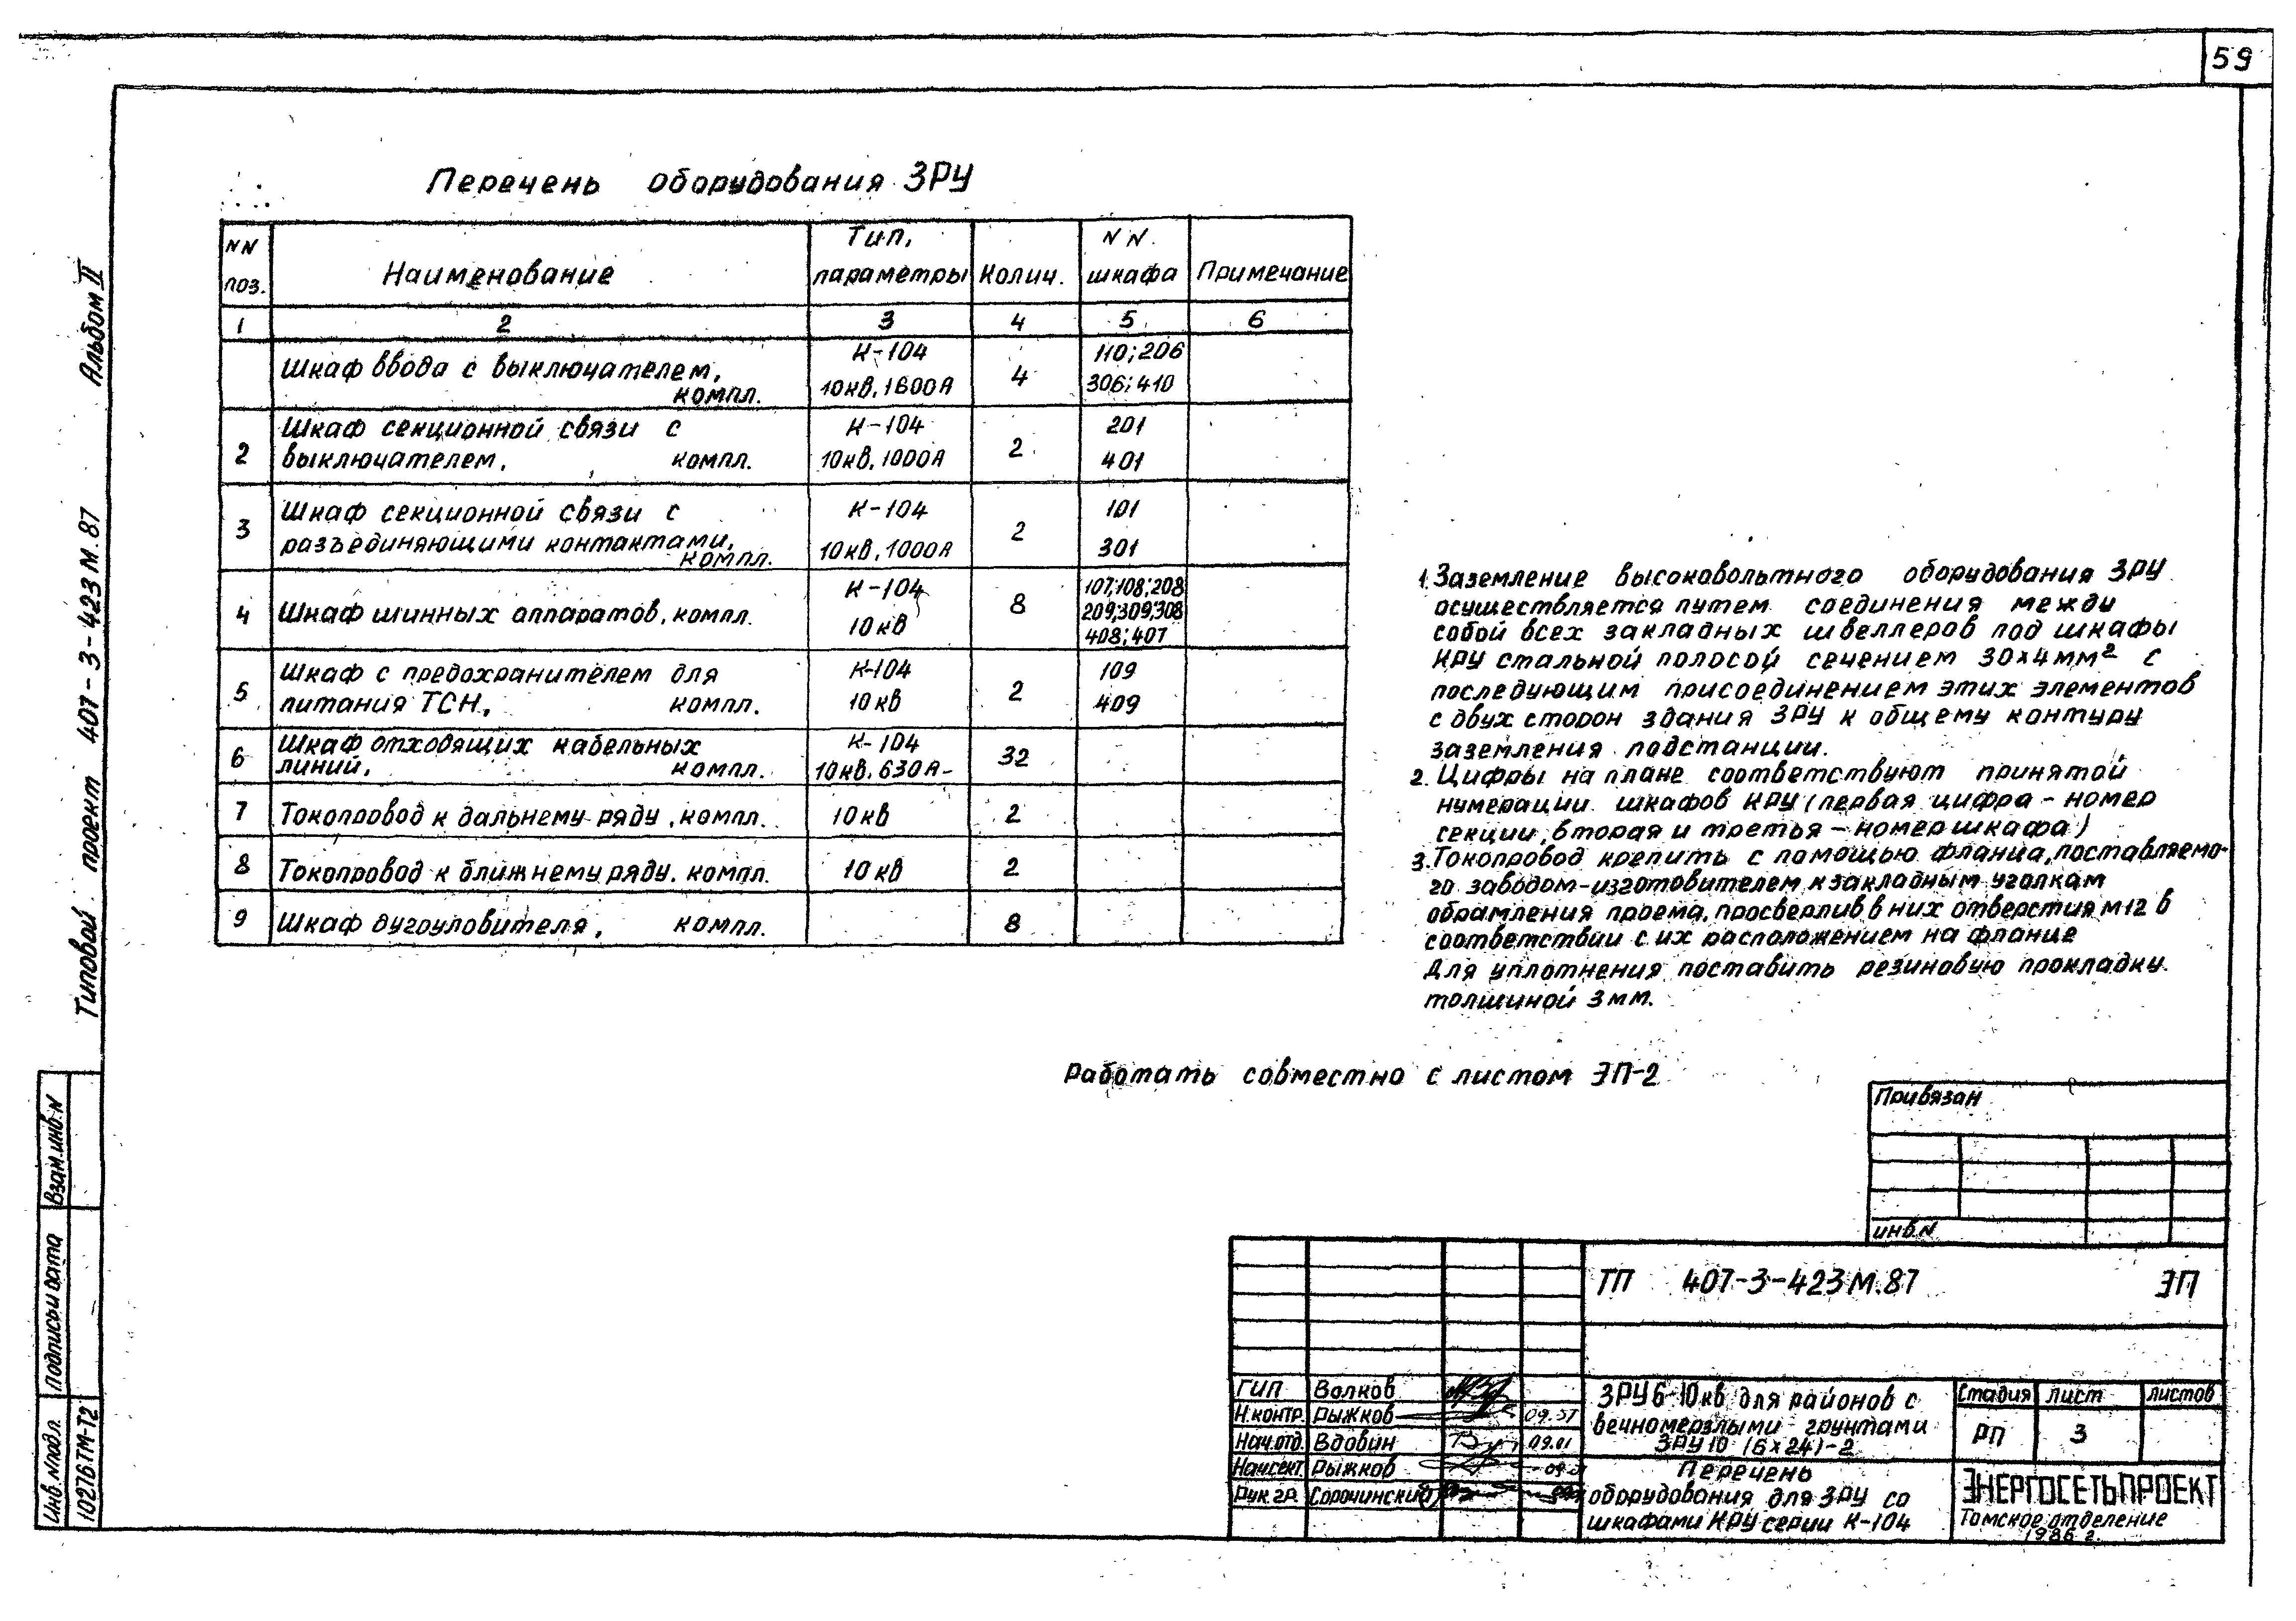 59
Перечень оборудования ЗРУ
NN поз.
Наименование
Тип, параметры
Колич.
NN шкафа
Примечание
1 2 3 4 5 6
Шкаф ввода с выключателем, К-104 110; 206
компл. 10кв, 1600А 4 306; 410
Шкаф секционной связи с К-104 201
2 выключателем, компл. 10кв, 1000А 2 401
Шкаф секционной связи с К-104 101
3 разъединяющими контактами, компл. 10кв, 1000А 2 301
К-104 107;108;208
4 Шкаф шинных аппаратов, компл. 10кв 8 209;309;308
408; 407
Шкаф с предохранителем для К-104 109
5 питания ТСН, компл. 10кв 2 409
Шкаф отходящих кабельных К-104
6 линий, компл. 10кв, 630А- 32
7 Токопровод к дальнему ряду, компл. 10кв 2
8 Токопровод к ближнему ряду. компл. 10кв 2
9 Шкаф дугоуловителя, компл. 8
1. Заземление высоковольтного оборудования ЗРУ
осуществляется путем соединения между
собой всех закладных швеллеров под шкафы
КРУ стальной полосой сечением 30х4мм² с
последующим присоединением этих элементов
с двух сторон здания ЗРУ к общему контуру
заземления подстанции.
2. Цифры на плане соответствуют принятой
нумерации шкафов КРУ (первая цифра - номер
секции, вторая и третья - номер шкафа)
3. Токопровод крепить с помощью фланца, поставляемо-
го заводом-изготовителем к закладным уголкам
обрамления проема, просверлив в них отверстия М12 в
соответствии с их расположением на фланце
Для уплотнения поставить резиновую прокладку
толщиной 3мм.
Работать совместно с листом ЭП-2
Привязан
инв.N
ТП 407-3-423М.87 ЭП
ГИП Волков
Н.контр. Рыжков
Нач.отд. Вдовин 09.01
Нач.сект. Рыжков
Рук.гр. Сорочинский
ЗРУ 6-10кв для районов с
вечномерзлыми грунтами
ЗРУ 10 (6х24)-2
Стадия лист листов
РП 3
Перечень
оборудования для ЗРУ со
шкафами КРУ серии К-104
ЭНЕРГОСЕТЬПРОЕКТ
Томское отделение
1986 г.
Типовой проект 407-3-423М.87 Альбом II
Взам.инв.N
Подпись и дата
Инв.Nподл.
10276ТМ-Т2